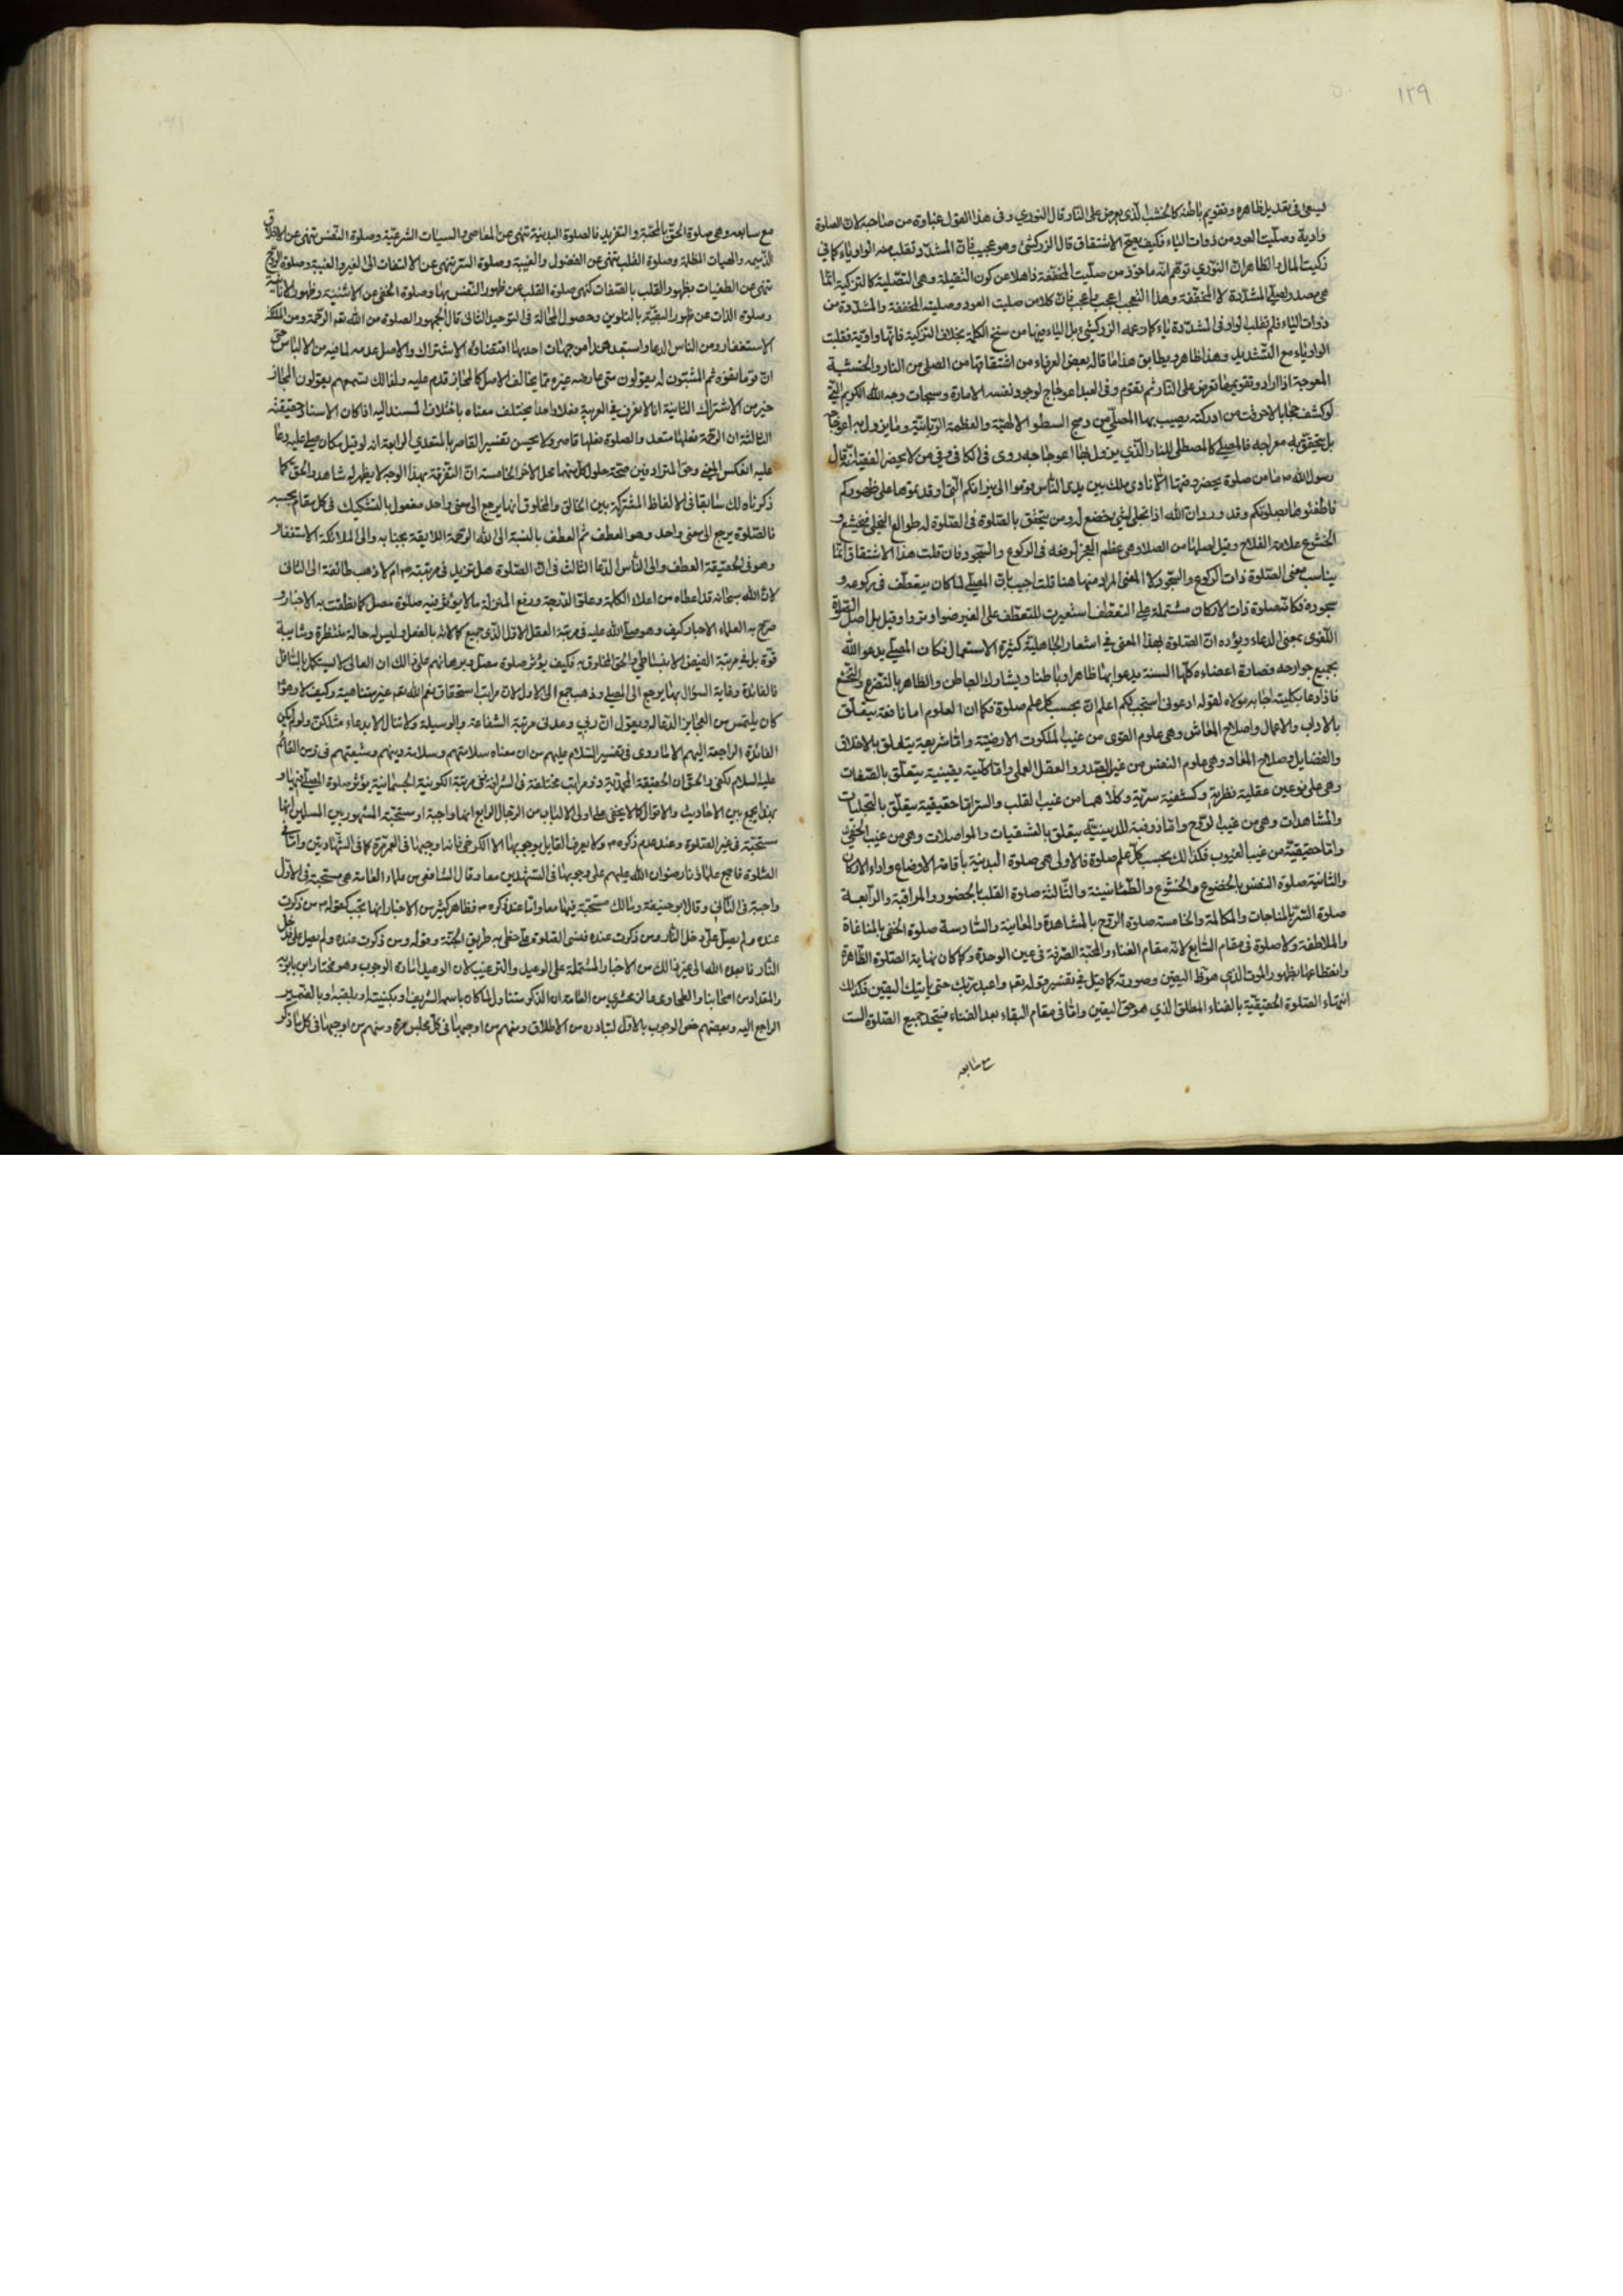 ١٢٩
يسعى في تعديل ظاهره وتقويم باطنه كالخشب الذي يعرض على النار وقال النووي وفى هذا القول غباوة من صاحبه لان الصلوة
واوية وصليت العود من ذوات الياء فكيف يصح الاشتقاق قال الزركشى وهو عجيب فان المشدد تقلب منه الواو ياء كما في
زكيت المال والظاهر ان النووي توهم انه ماخوذ من صليت المخففة ذاهلا عن كون الثقيلة وهى التصلية كالتزكية انما
هى مصدر لصلى المشددة لا المخففة وهذا التعجب اعجب واعجب فان كلا من صليت العود وصليته المخففة والمشددة من
ذوات الياء فلم تقلب الواو في المشددة ياء كما زعمه الزركشي بل الياء فيهما من سنخ الكلمة بخلاف التزكية فانها واوية فقلبت
الواو ياء مع التشديد وهذا ظاهر ويطابق هذا ما قاله بعض العرفاء من اشتقاقها من الصلى من النار والخشبة
المعوجة اذا اراد وتقويمها تعرض على النار ثم تقوم وفى العبد اعوجاج لوجود نفسه الامارة وسبحات وجه الله الكريم التي
لو كشف حجابها لاحرقت من ادركته يصيب بها المصلي من وهج السطو الالهية والعظمة الربانية وما يزول به اعوجاجه
بل يتحقق به معراجه فالمصلي كالمصطلى بالنار الذي يزول بها اعوجاجه روى في الكافي وفي من لا يحضر الفقيه انه قال
رسول الله ص ما من صلوة يحضر وقتها الا نادى ملك بين يدى الناس قوموا الى نيرانكم التي اوقدتموها على ظهوركم
فاطفئوها بصلوتكم وقد ورد ان الله اذا تجلى لشئ يخضع له ومن يتحقق بالصلوة في الصلوة له طوالع التجلي فيخشع و
الخشوع علامة الفلاح وقيل اصلها من الصلا وهى عظم العجز لرفعه في الركوع والسجود فان قلت هذا الاشتقاق انما
يناسب معنى الصلوة ذات الركوع والسجود لا المعنى المراد منها هنا قلت اجيب بان المصلي لما كان يتعطف في ركوعه و
سجوده فكانت صلوة ذات الاركان مشتملة على التعطف استعيرت للتعطف على الغير ضوا وتردا وقيل بل اصل الصلوة
اللغوى بمعنى الدعاء ويؤده ان الصلوة بهذا المعنى في اشعار الجاهلية كثيرة الاستعمال فكان المصلي يدعو الله
بجميع جوارحه فصارة اعضاوه كلها السنة يدعوا بها ظاهرا وباطنا ويشارك الباطن والظاهر بالتضرع والتخشع
فاذا دعا بكليته اجابه مولاه لقوله ادعونى استجب لكم اعلم ان بحسب كل علم صلوة فكما ان العلوم اما نافعة يتعلق
بالاداب والاعمال واصلاح المعاش وهى علوم القوى من غيب الملكوت الارضية واما شريعية يتعلق بالاخلاق
والفضايل وصلاح المعاد وهى علوم النفس من غيب الصدر والعقل العملي واما كلية يقينية يتعلق بالصفات
وهى على نوعين عقلية نظرية وكشفية سرية وكلاهما من غيب القلب والسر واما حقيقية يتعلق بالتجليات
والمشاهدات وهى من غيب الروح واما ذوقية للدينية يتعلق بالشقيات والمواصلات وهى من غيب الخفي
واما حقيقية من غيب الغيوب فكذلك بحسب كل علم صلوة فالاولى هى صلوة البدنية باقامة الاوضاع واداء الاركان
والثانية صلوة النفس بالخضوع والخشوع والطمئانينة والثالثة صلوة القلب بالحضور والمراقبة والرابعة
صلوة السر بالمناجات والمكالمة والخامسة صلوة الروح بالمشاهدة والمعاينة والسادسة صلوة الخفي بالمناغاة
والملاطفة ولا صلوة في مقام السابع لانه مقام الفناء والمحبة الصرفة في عين الوحدة وكما كان نهاية الصلوة الظاهرة
وانقطاعها بظهور الموت الذي هو ظ اليقين وصورته كما قيل في تفسير قوله تعم واعبد ربك حتى يأتيك اليقين فكذلك
انتهاء الصلوة الحقيقية بالفناء المطلق الذي هو حق اليقين واما في مقام البقاء بعد الفناء فيتحد جميع الصلوة الست
مع سابعه
مع سابعه وهى صلوة الحق بالمحبة والتفريد فالصلوة البدنية تنهى عن المعاصى والسيئات الشرعية وصلوة النفس تنهى عن الاخلاق
الذميمه والهيات المظلمة وصلوة القلب تنهى عن الفضول والغيبة وصلوة السر تنهى عن الالتفات الى الغير والغيبة وصلوة الروح
تنهى عن الطغيان بظهور القلب بالصفات كنهى صلوة القلب عن ظهور النفس بها وصلوة الخفي عن الاثنينية وظهور الانائية
وصلوة الذات عن ظهور البقية بالتلوين وحصول المخالفة في التوحيد الثانى قال الجمهور الصلوة من الله تعم الرحمة ومن الملئكة
الاستغفار ومن الناس الدعا واستبعد هذا من جهات احديها اقتضاؤه الاشتراك والاصل عدمه لما فيه من الالباس حتى
ان قوما نفوه ثم المثبتون له يقولون متى عارضه غيره مما يخالف الاصل كالمجاز قدم عليه ولذالك سمعهم يقولون المجاز
خير من الاشتراك الثانية انا لا نعرف في العربية فعلا واحدا يختلف معناه باختلاف المسند اليه اذا كان الاسناد حقيقته
الثالثة ان الرحمة فعلها متعد والصلوة فعلها قاصر ولا يحسن تفسير القاصر بالمتعدي الرابعة انه لو قيل مكان صلى عليه دعا
عليه انعكس المعنى وحق المترادفين صحة حلول كل منهما محل الاخر الخامسة ان التفرقة بهذا الوجه لا يظهر له شاهد والحق كما
ذكرناه لك سابقا في الالفاظ المشتركة بين الخالق والمخلوق انها يرجع الى معنى واحد مقعول بالتشكيك في كل مقام بحسبه
فالصلوة يرجع الى معنى واحد وهو العطف ثم العطف بالنسبة الى الله الرحمة اللايقة بجنابه والى الملائكة الاستغفار
وهو في الحقيقة العطف والى الناس الدعا الثالث في ان الصلوة هل تزيد في مرتبته ص ام لا ذهب طائفة الى الثانى
لان الله سبحانه قد اعطاه من اعلاء الكلمة وعلو الدرجة ورفع المنزلة ما لا يؤثر فيه صلوة مصل كما نطقت به الاخبار و
صرح به العلماء الاحبار كيف وهو صلى الله عليه في مرتبة العقل الاول الذي جميع كمالاته بالفعل وليس له حالة منتظرة وشايبة
قوة بل في مرتبة الفيض الانبساطي والحق المخلوق به فكيف يؤثر صلوة مصل وبرهانهم على ذالك ان العالى لا يستكمل بالسافل
فالفائدة وغاية السؤال بها يرجع الى المصلي وذهب جمع الى الاول لان مراتب استحقاق نعم الله تعم غير متناهية وكيف لا وهو
كان يلتمس من العجايز الدعا له ويقول ان ربي وعدنى مرتبة الشفاعة والوسيلة ولا تنال الا بدعاء
الفائدة الراجعة اليهم الا ما روى في تفسير السلام عليهم من ان معناه سلامتهم وسلامة دينهم وشيعتهم في زمن القائم
عليه السلام لكفى والحق ان الحقيقة المحمدية ذو مراتب مختلفة في الشرافة ففى مرتبة الكونية الجسمانية يؤثر صلوة المصلي فيها و
بهذا يجمع بين الاحاديث والاقوال كما لا يخفى على اولى الالباب من الرجال الرابع انها واجبة او مستحبة المشهور بين المسلمين انها
مستحبة في غير الصلوة وعند عدم ذكره ص ولا يعرف القايل بوجوبها الا الكرخى فانه اوجبها في العمر مرة كما في الشهادتين واما في
الصلوة فاجمع علماؤنا رضوان الله عليهم على وجوبها في التشهدين معا وقال الشافعى من علماء العامة هى مستحبة في الاول
واجبة في الثانى وقال ابو حنيفة ومالك مستحبة فيهما معا واما عند ذكره ص فظاهر كثير من الاخبار انها تجب كقوله ص من ذكرت
عنده ولم يصل علي دخل النار ومن ذكرت عنده فنسى الصلوة على خطى به طريق الجنة وقوله ومن ذكرت عنده ولم يصل على فدخل
النار فابعده الله الى غير ذالك من الاخبار المشتملة على الوعيد والترغيب لان الوعيد امارة الوجوب وهو مختار ابن بابويه
والمقداد من اصحابنا والطحاوي والزمخشري من العامة ان الذكر متناول لما كان باسمه الشريف او بكنيته او بلقبه او بالضمير
الراجع اليه وبعضهم خص الوجوب بالاول لتبادره من الاطلاق ومنهم من اوجبها في كل مجلس مرة ومنهم من اوجبها في كل ما ذكر